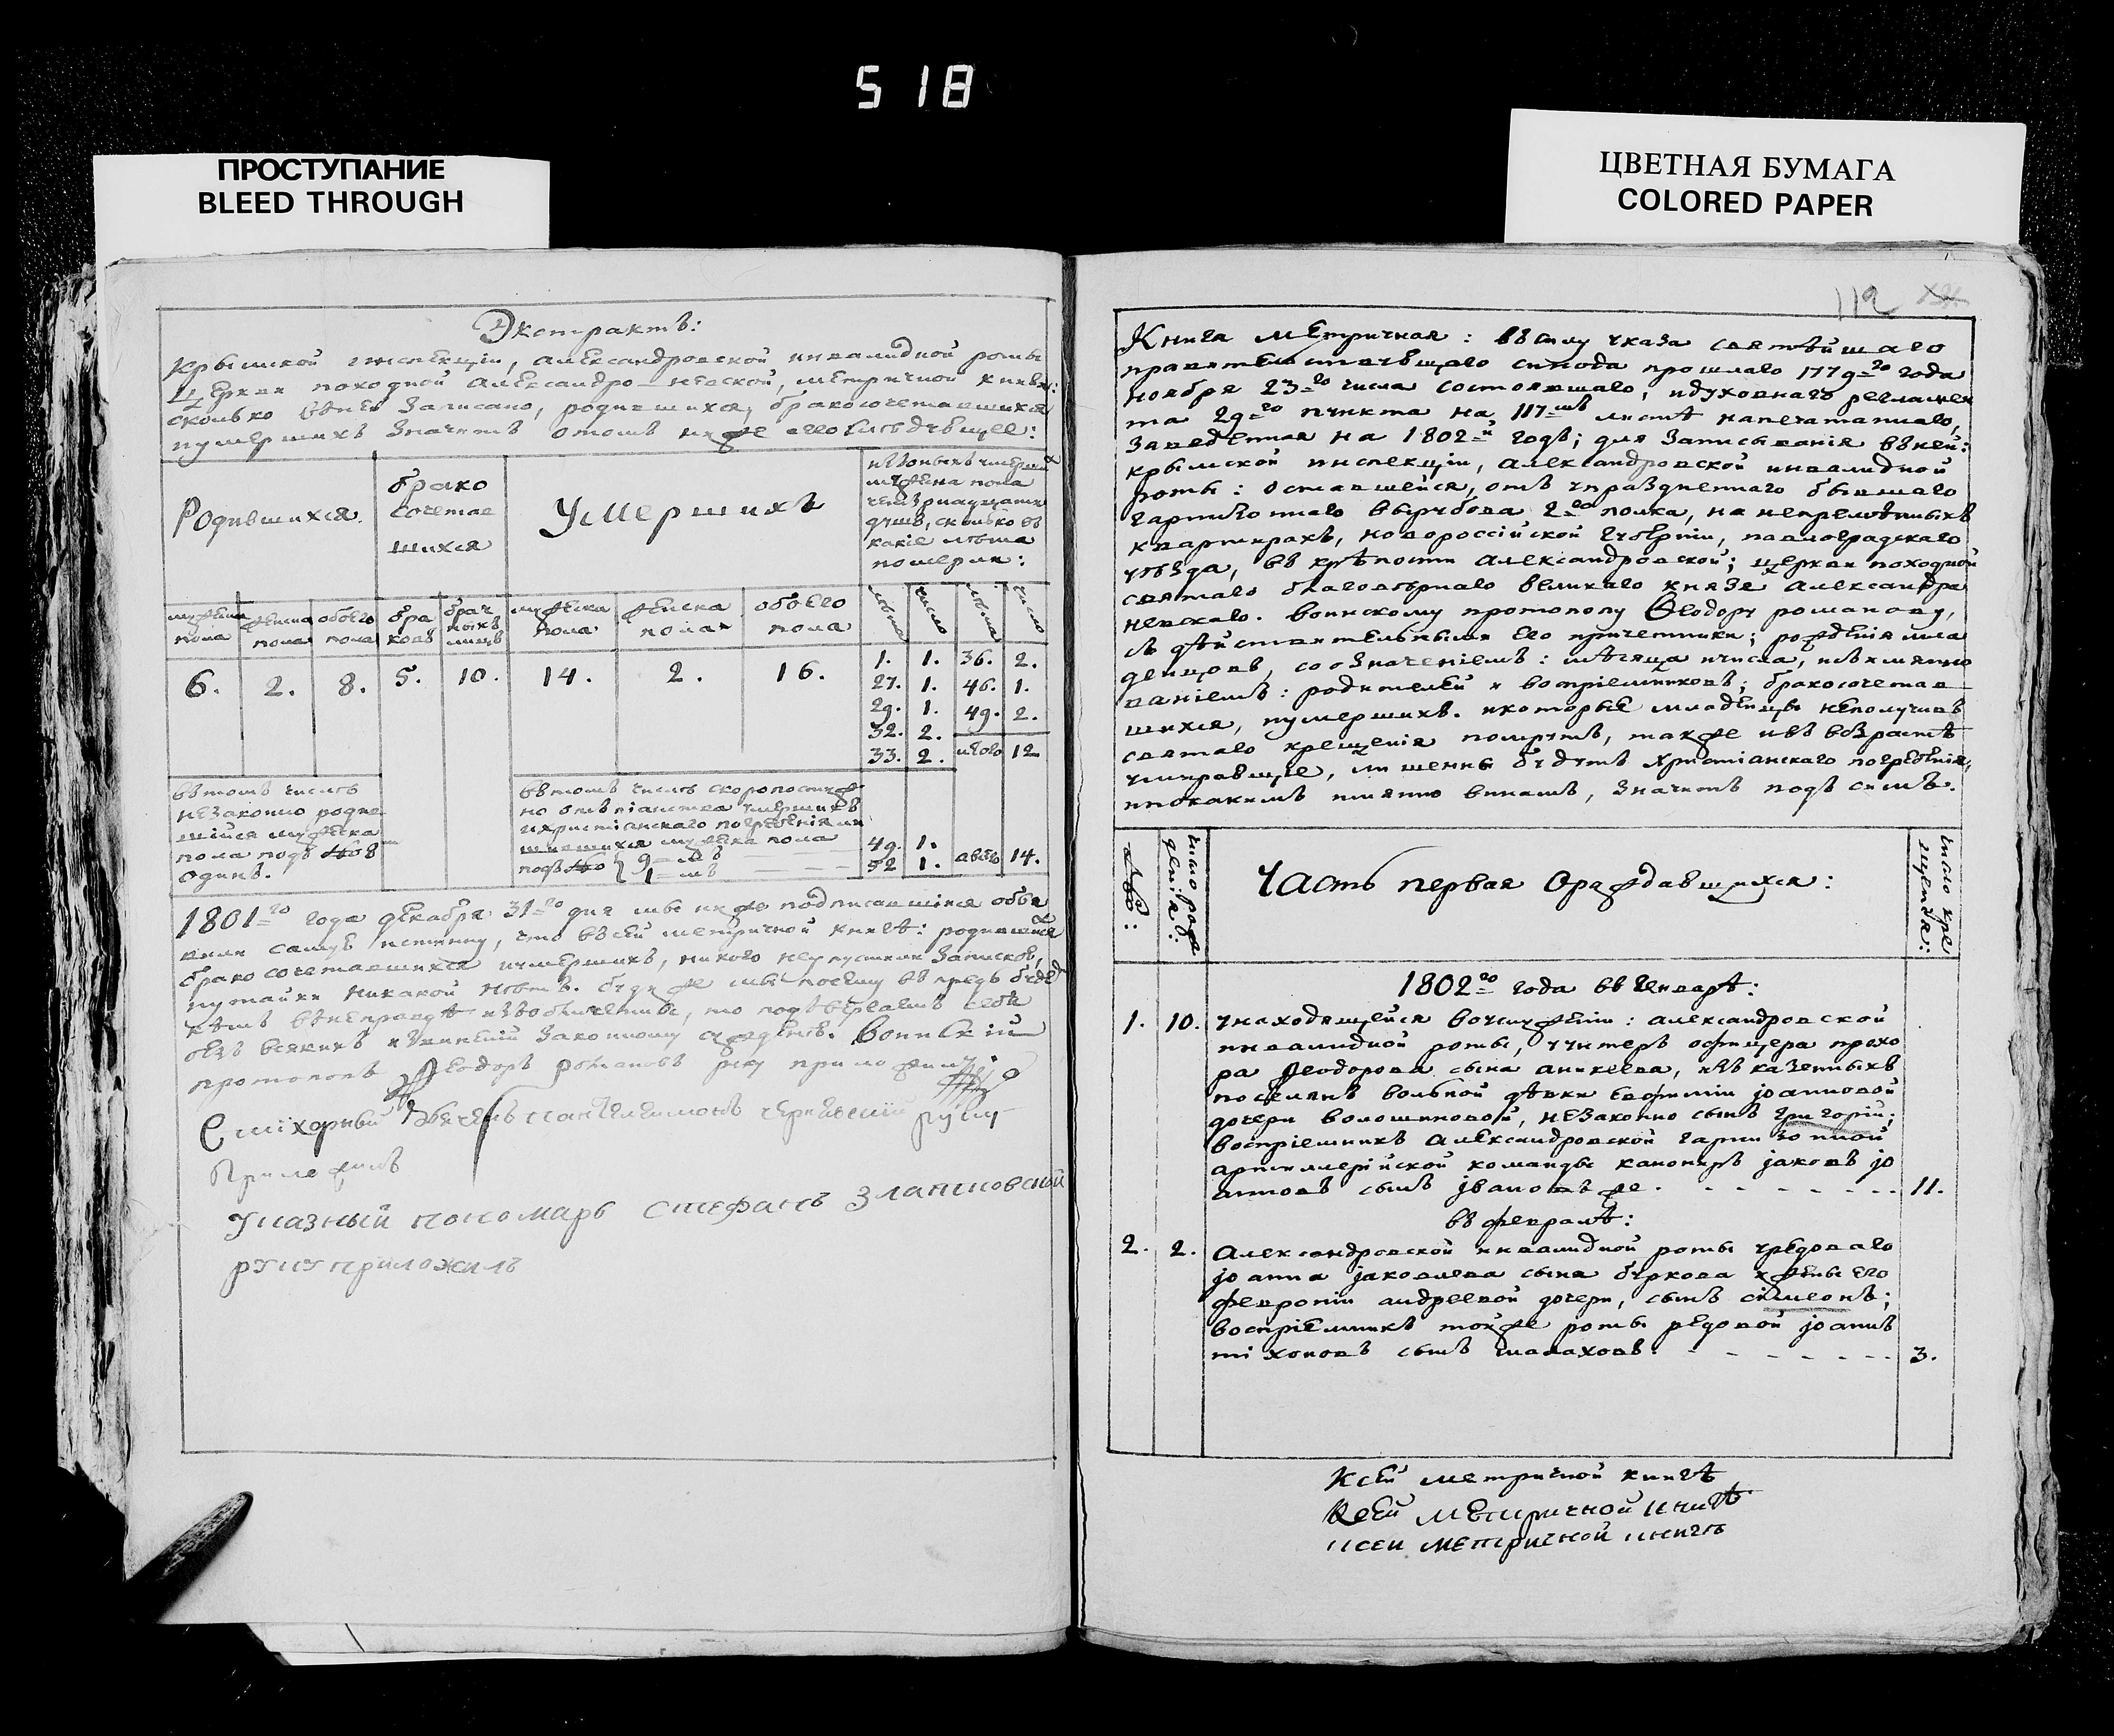 518
ПРОСТУПАНИЕ
BLEED THROUGH
ЦВЕТНАЯ БУМАГА
COLORED PAPER
Экстрактъ:
Крымской инспекціи, александровской инвалидной роты
Церкви походной александро-невской, метричной книги:
сколько въней записано, родившихся, бракосочетавшихся
иумершихъ значитъ отомъ ниже сего слѣдующее:
Родившихся.
брако
сочетав
шихся
Умершихъ
мужеска пола
женска пола
обоего пола
бра ковъ
брач ныхъ лицъ
мужеска пола
женска пола
обоего пола
лѣта
число
лѣта
число
6. 2. 8. 5. 10. 14. 2. 16.
1. 1. 36. 2.
27. 1. 46. 1.
29. 1. 49. 2.
32. 2.
33. 2. итого 12
втомъ числѣ
незаконно родив
шійся мужеска
пола подъ №8
одинъ.
втомъ числѣ скоропостиж
но отъ піанства умершихъ
ихристіанскаго погребенія ли
шившихся мужеска пола
подъ № 9 мъ
1 мъ
49. 1.
52 1. авсего 14.
1801го года декабря 31го дня мы ниже подписавшіяся объя
вили самую истинну, что въсей метричной книгѣ: родившихся
бракосочетавшихся иумершихъ, никого неупустили записковъ,
иутайки никакой нѣтъ. буди же мы посему въпредь буде
безъ всякихъ извиненій законному сужденію. Воинскій
протопопъ Ѳеодоръ романовъ руку приложилъ
Стіхарный руку
Приложилъ
Указный пономарь Стефанъ Злапиовский
руку приложилъ
112
Книга метричная: въсилу указа святѣйшаго
правительствующаго синода прошлаго 1779го года
ноября 23го числа состоявшаго, идуховнаго регламен
та 29го пункта на 117мъ листѣ напечатаннаго,
заведенная на 1802й годъ; для записыванія въней:
крымской инспекціи, александровской инвалидной
роты: оставшейся, отъ упраздненнаго бывшаго
гарнизоннаго вырубова 2го полка, на непремѣнныхъ
квартирахъ, новороссійской губерніи, павлоградскаго
уѣзда, въ крѣпости александровской; церкви походной
святаго благовѣрнаго великаго князя александра
невскаго. воинскому протопопу Ѳеодору романову,
съ дѣйствительными его причетники; рожденія мла
денцовъ, со означеніемъ: мѣсяца ичисла, исъимянно
ваніемъ: родителей и воспріемниковъ; бракосочетав
шихся, иумершихъ. икоторые младенцы неполучивъ
святаго крещенія помрутъ, также ивъ возрастѣ
умиравщіе, лишенны будутъ христіанскаго погребенія,
ипокакимъ имянно винамъ, значитъ подъ симъ.
№:
число рож
денія:
Часть первая Ораждавшихся:
число кре
щенія:
1802го года въ генварѣ:
1. 10. унаходящейся вочуженіи: александровской
инвалидной роты, ундеръ офицера прохо
ра Ѳеодорова сына аникеева, изъ казенныхъ
поселянъ вольной дѣвки евфиміи іоанновой
дочери волошиновой, незаконно сынъ григорій;
воспріемникъ александровской гарнизонной
артиллерійской команды канониръ іаковъ іо
анновъ сынъ івановъ же. 11.
въ февралѣ:
2. 2. александровской инвалидной роты рядоваго
іоанна іаковлева сына буркова ижены его
февроніи андреевой дочери, сынъ симеонъ;
воспріемникъ тойже роты рядовой іоаннъ
тіхоновъ сынъ малаховъ. 3.
Ксей метричной книгѣ
Ксей метричной книгѣ
ксеи метричной книгѣ